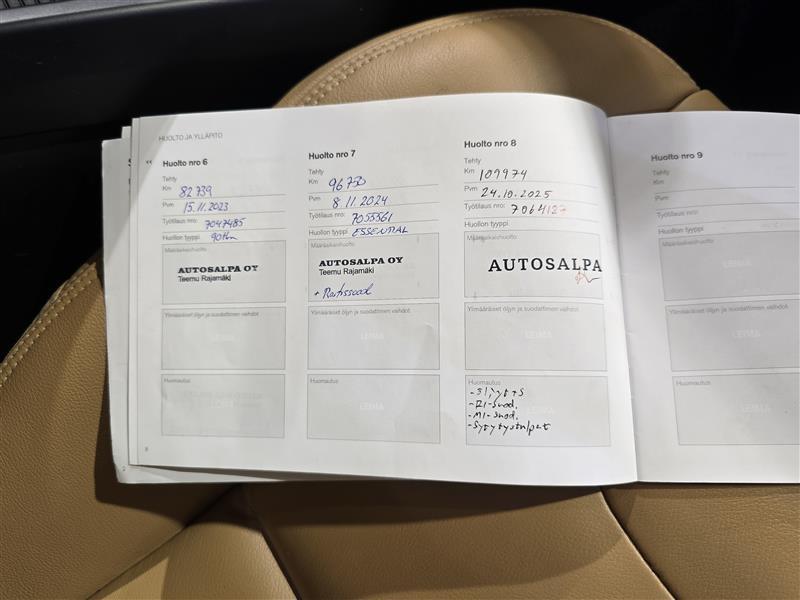 HUOLTO JA YLLÄPITO
<<
Huolto nro 6
Tehty
Km 82 739
Pvm 15.11.2023
Työtilaus nro: 7047485
Huollon tyyppi
Määräaikaishuolto
AUTOSALPA OY
Teemu Rajamäki
Ylimääräiset öljyn ja suodattimen vaihdot
Huomautus
8
Huolto nro 7
Tehty
Km 96750
Pvm 8.11.2024
Työtilaus nro: 7055561
Huollon tyyppi: ESSENTIAL
Määräaikaishuolto
AUTOSALPA OY
Teemu Rajamäki
Ylimääräiset öljyn ja suodattimen vaihdot
LEIMA
Huomautus
LEIMA
Huolto nro 8
Tehty
Km 109974
Pvm 24.10.2025
Työtilaus nro: 7064127
Huollon tyyppi:
Määräaikaishuolto
AUTOSALPA
Ylimääräiset öljyn ja suodattimen vaihdot
LEIMA
Huomautus
-RI-suod.
-MI-suod.
Huolto nro 9
Tehty
Km
Pvm
Työtilaus nro:
Huollon tyyppi:
Määräaikaishuolto
Ylimääräiset öljyn ja suodattimen vaihdot
LEIMA
Huomautus
LEIMA